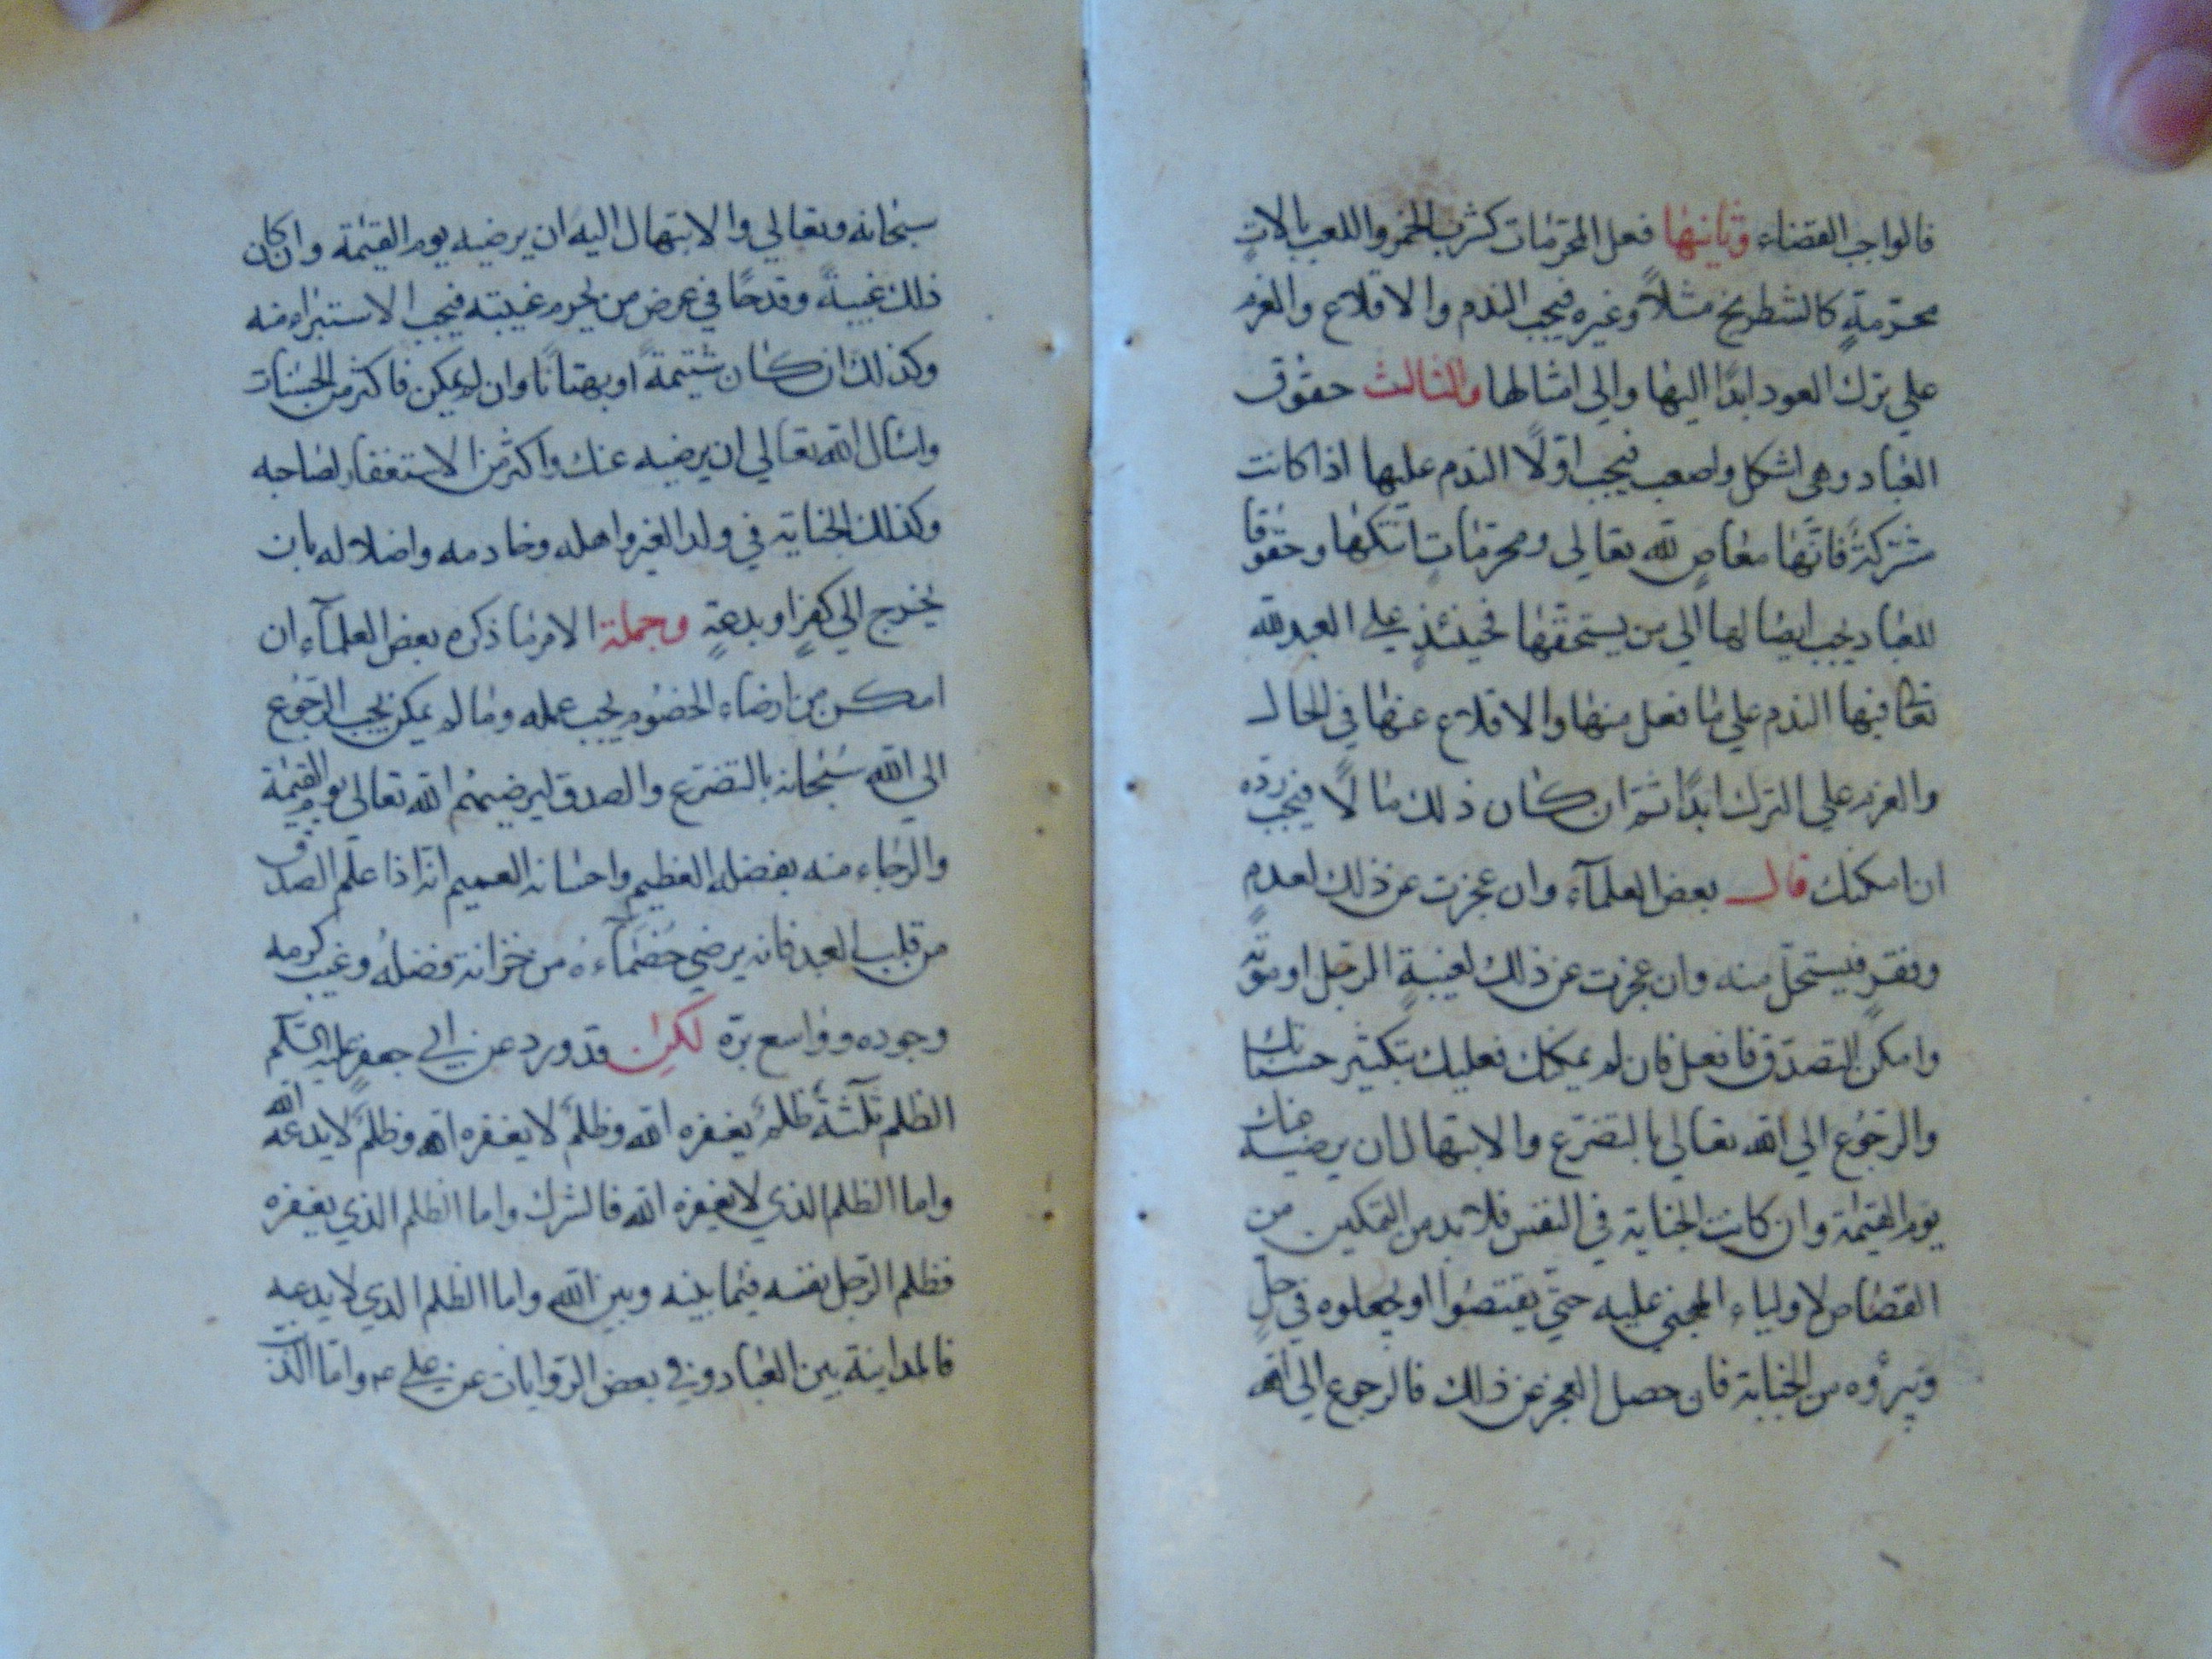 فالواجب القضاء وثانيها فعل المحرمات كشرب الخمر واللعب بالات
محرمةٍ كالشطرنج مثلاً وغيره فيجب الندم والاقلاع والعزم
علي ترك العود ابدًا اليها والي امثالها والثالث حقوق
العباد وهي اشكل واصعب فيجب اوّلاً الندم عليها اذا كانت
مشتركةً فانّها معاصٍ لله تعالي ومحرمات وحقوقا
للعباد يجب ايصالها الي من يستحقّها فحينئذٍ علي العبد لله
تعالى فيها الندم علي ما فعل منها والاقلاع عنها في الحال
والعزم علي الترك ابدًا ثم ان كان ذلك مالاً فيجب ردّه
ان امكنك قال بعض العلمآء وان عجزت عن ذلك لعدمٍ
وفقرٍ فيستحلّ منه وان عجزت عن ذلك لغيبة الرجل او موته
وامكن التصدّق فافعل فان لم يمكنك فعليك بتكثير حسناتك
والرجوع الي الله تعالي بالتضرّع والابتهال ان يرضيه عنك
يوم القيمة وان كانت الجناية في النفس فلا بد من التمكين من
القصاص لاولياء المجني عليه حتّي يقتصّوا او يجعلوه في حلٍ
ويبرؤه من الجناية فان حصل العجز عن ذلك فالرجوع الي الله
سبحانه وتعالي والابتهال اليه ان يرضيه يوم القيمة وان كان
ذلك غيبةً وقدحًا في عرض من يحرم غيبته فيجب الاستبراء منه
وكذلك ان كان شتيمةً او بهتانًا وان لم يمكن فاكثر من الحسنات
واسال الله تعالي ان يرضيه عنك واكثر من الاستغفار لصاحبه
وكذلك الجناية في ولد الغير واهله وخادمه واضلاله بان
يخرج الي كفرٍ او بدعةٍ وجملة الامر ما ذكره بعض العلمآء ان
امكن من ارضاء الخصوم يجب عمله وما لم يمكن يجب الرّجوع
الي الله سبحانه بالتضرّع والصدق ليرضيهم الله تعالى يوم القيمة
والرّجاء منه بفضله العظيم واحسانه العميم انه اذا علم الصدق
من قلب العبد فانه يرضي خصماءه من خزانة فضله وغيب كرمه
وجوده وواسع برّه لكن قد ورد عن ابي جعفرٍ عليه السّلم
الظلم ثلثة ظلمٌ يغفره الله وظلمٌ لا يغفره الله وظلمٌ لا يدعه الله
واما الظلم الذي لا يغفره الله فالشرك واما الظلم الذي يغفره
فظلم الرّجل نفسه فيما بينه وبين الله واما الظلم الذي لا يدعه
فالمداينة بين العباد وفي بعض الرّوايات عن علي ع وامّا الذي